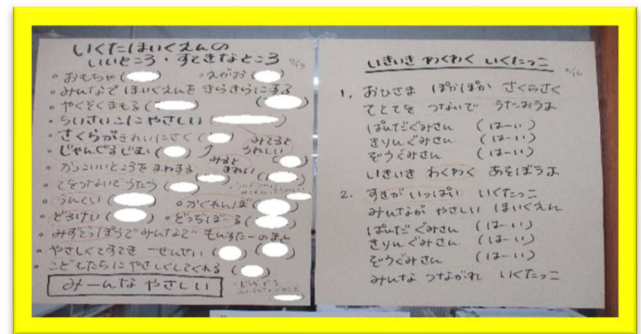 いくたほいくえんの
いいところ・すてきなところ
・おもちゃ( )
・えがお( )
・みんなでほいくえんをきらきらにする( )
・やくそくまもる( )
・ちいさいこにやさしい( )
・さくらがきれいにさく( )
・じゃんぐるじむ( )
みてると
うれしい
みると
きれい
・かっこいいところをまねする( )
・てをつないでうたう( )
・うんてい( )
・かくれんぼ( )
・どろけい( )
・どっちぼーる( )
・みずでっぽうでみんなでもんすたーのまと
・やさしくてすてき せんせい( )( )
・こどもたちにやさしくしてくれる( )
みーんなやさしい
いきいき わくわく いくたっこ
1. おひさま ぽかぽか さくらさく
てとてを つないで うたおうよ
ぱんだぐみさん (はーい)
きりんぐみさん (はーい)
ぞうぐみさん (はーい)
いきいき わくわく あそぼうよ
2. すきがいっぱい いくたっこ
みんなが やさしい ほいくえん
ぱんだぐみさん (はーい)
きりんぐみさん (はーい)
ぞうぐみさん (はーい)
みんな つながれ いくたっこ